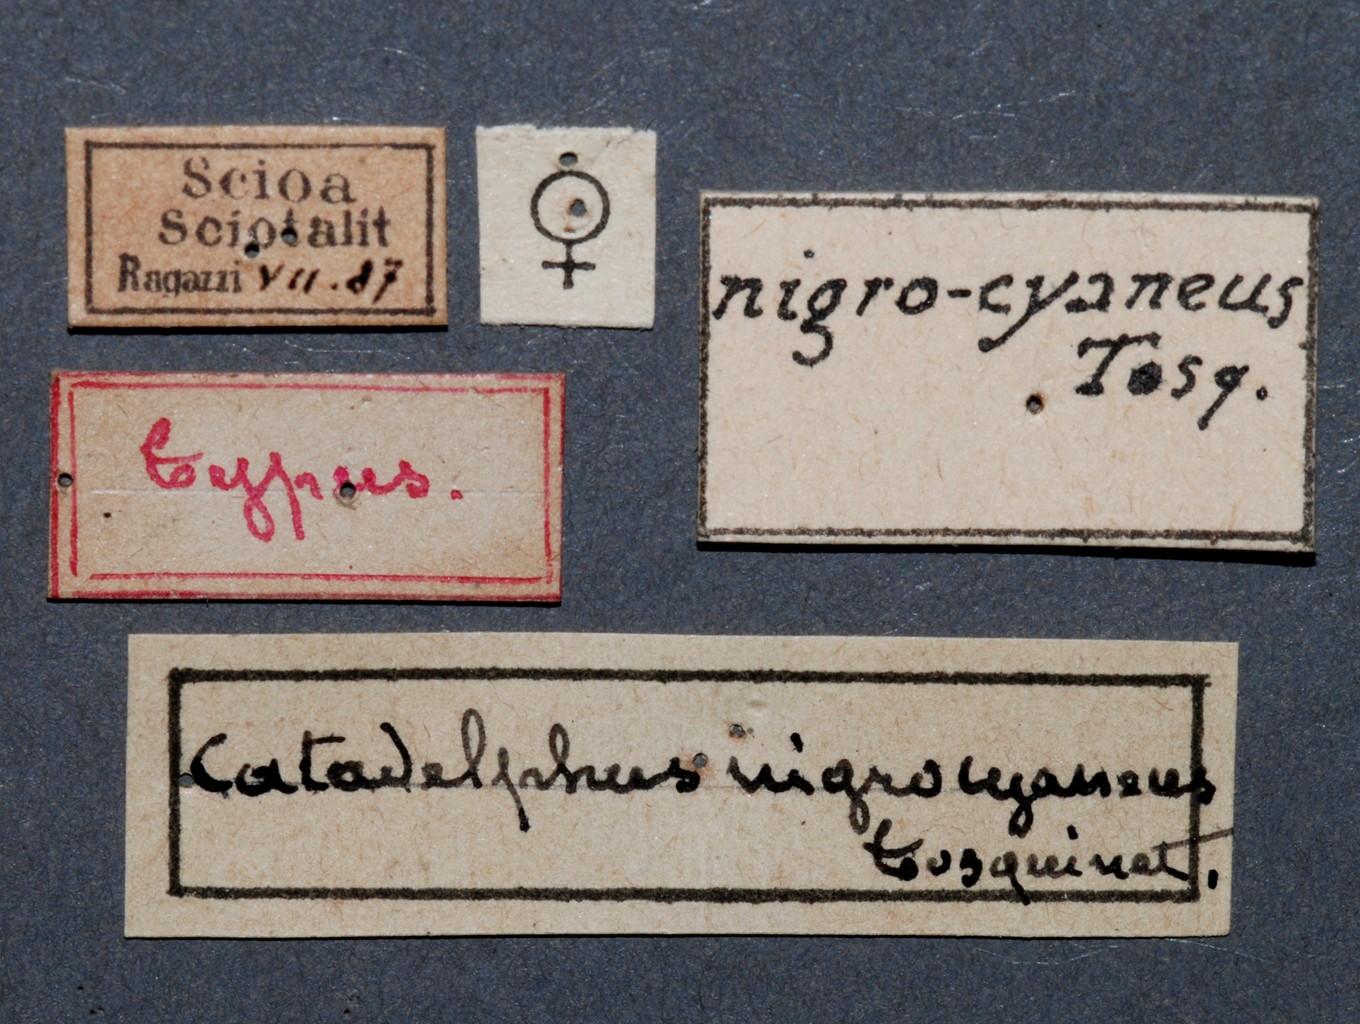 Scioa
Sciotalit
Ragazzi VII.87
♀
nigro-cyaneus
Tosq.
typus.
Catadelphus nigrocyaneus
tosquinet.